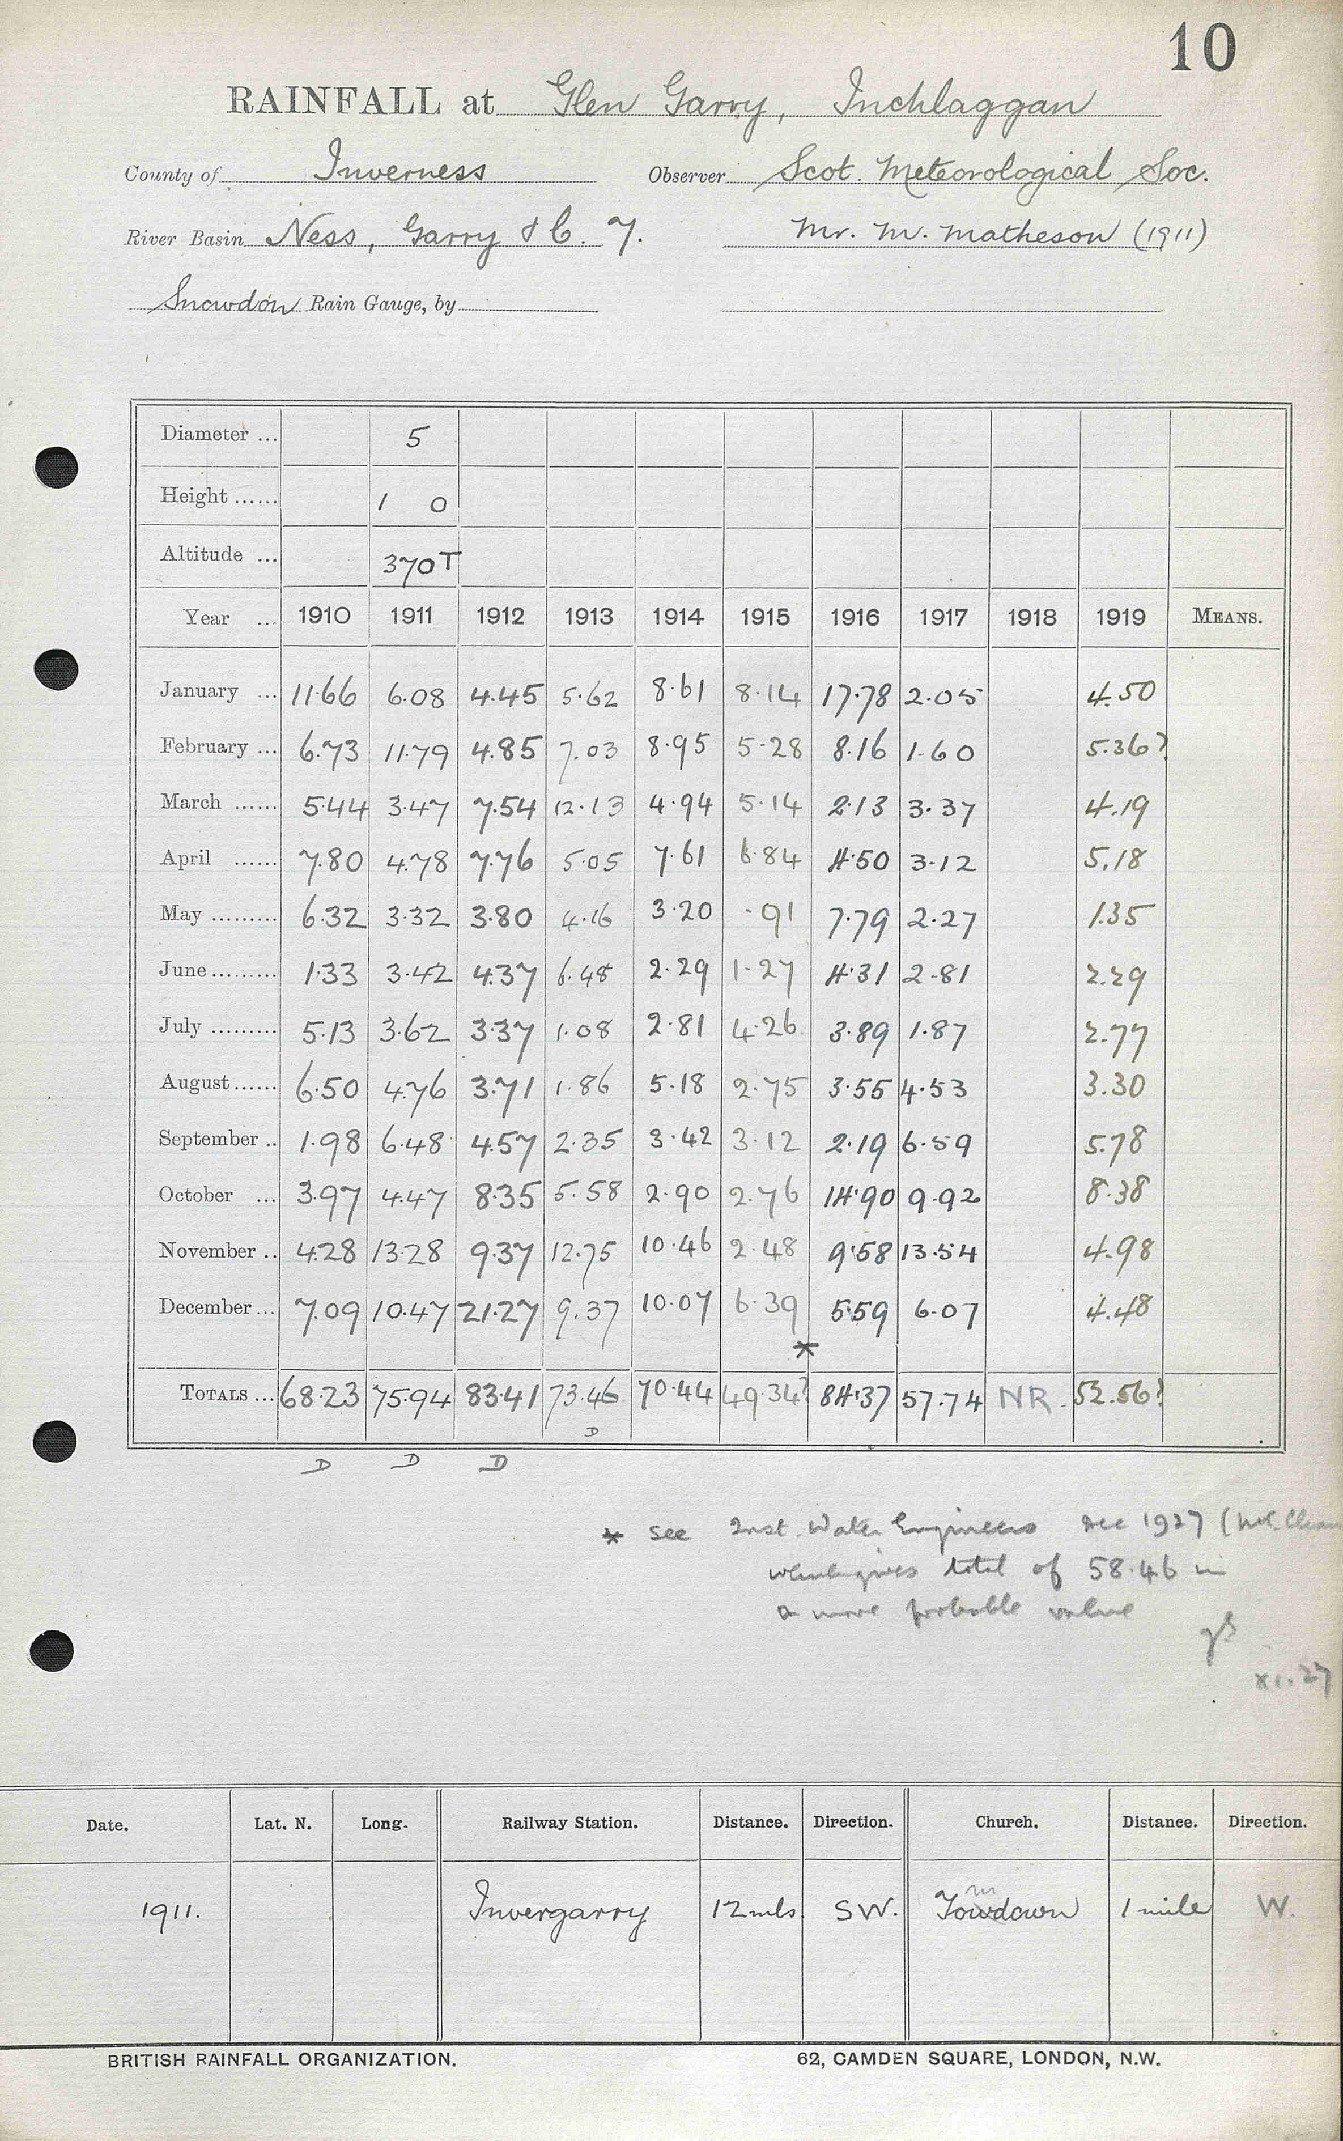 10
RAINFALL at Glen Garry, Inchlaggan
County of Inverness Observer Scot. Meteorological Soc.
River Basin Ness, Garry & C. 7. Mr. M. Matheson (1911)
Snowdon Rain Gauge, by
Diameter ... 5
Height ...... 1 0
Altitude ... 370T
Year ... 1910 1911 1912 1913 1914 1915 1916 1917 1918 1919 MEANS.
January ... 11.66 6.08 4.45 5.62 8.61 8.14 17.78 2.05 4.50
February ... 6.73 11.79 4.85 7.03 8.95 5.28 8.16 1.60 5.36?
March ...... 5.44 3.47 7.54 12.13 4.94 5.14 2.13 3.37 4.19
April ...... 7.80 4.78 7.76 5.05 7.61 6.84 4.50 3.12 5.18
May ......... 6.32 3.32 3.80 4.16 3.20 .91 7.79 2.27 1.35
June ......... 1.33 3.42 4.37 6.48 2.29 1.27 4.31 2.81 2.29
July ......... 5.13 3.62 3.37 1.08 2.81 4.26 3.89 1.87 2.77
August ...... 6.50 4.76 3.71 1.86 5.18 2.75 3.55 4.53 3.30
September .. 1.98 6.48 4.57 2.35 3.42 3.12 2.19 6.59 5.78
October ... 3.97 4.47 8.35 5.58 2.90 2.76 14.90 9.92 8.38
November .. 4.28 13.28 9.37 12.75 10.46 2.48 9.58 13.54 4.98
December ... 7.09 10.47 21.27 9.37 10.07 6.39 5.59 6.07 4.48
*
TOTALS ... 68.23 75.94 83.41 73.46 70.44 49.34? 84.37 57.74 NR. 52.56?
D
D D D
* see Inst. Water Engineers Dec 1927
which gives total of 58.46 in
a more probable value
xi.27
Date. Lat. N. Long. Railway Station. Distance. Direction. Church. Distance. Direction.
1911. Invergarry 12 mls. SW. Towdown 1 mile W.
BRITISH RAINFALL ORGANIZATION. 62, CAMDEN SQUARE, LONDON, N.W.